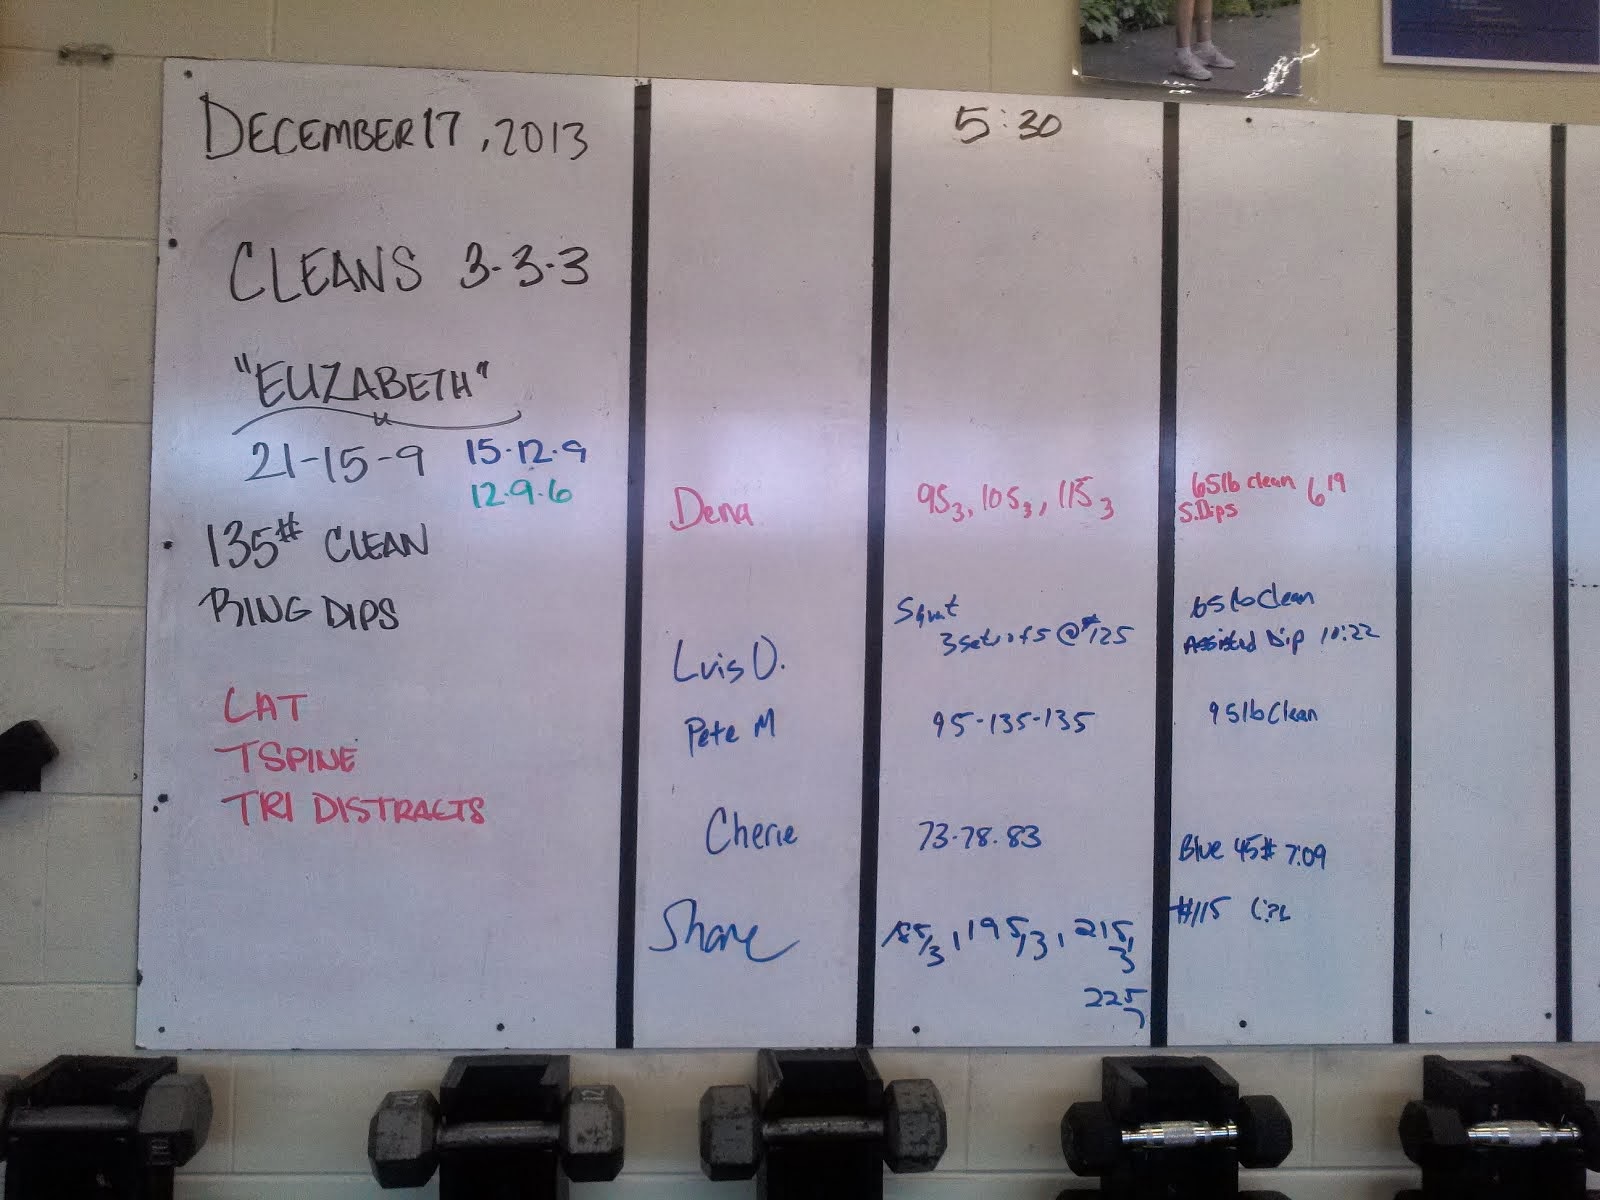 DECEMBER 17, 2013
5:30
CLEANS 3-3-3
"ELIZABETH"
21-15-9 15-12-9
12-9-6
135# CLEAN
RING DIPS
LAT
TSPINE
TRI DISTRACTS
Dena 95₃, 105₃, 115₃ 65lb clean 6¹⁹
S.Dips
Squat 65lb Clean
3 sets of 5 @#125 Assisted Dip 10:22
Luis O.
Pete M 95-135-135 95lb Clean
Cherie 73-78-83 Blue 45# 7:09
Shane 185/3, 195/3, 215/3 #115
225